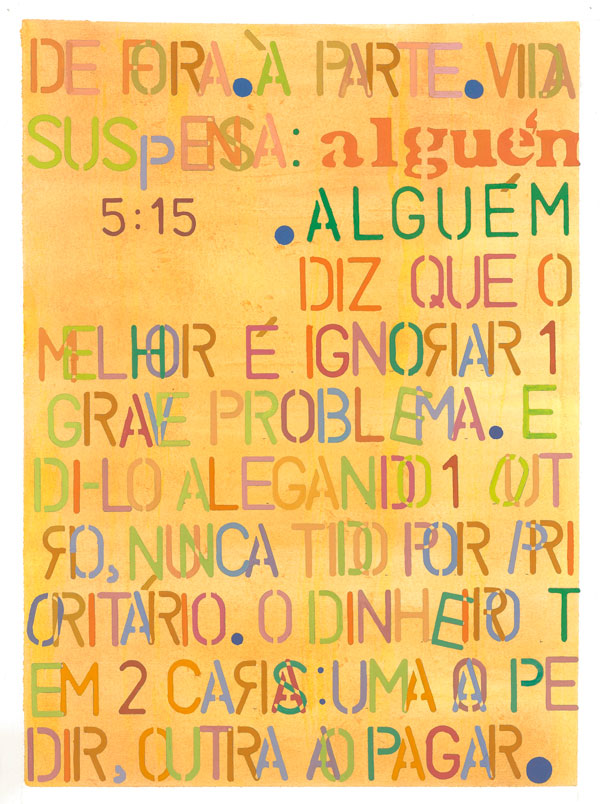 DE FORA. À PARTE. VIDA
SUSpENSA: alguém
5:15 .ALGUÉM
DIZ QUE O
MELHOR É IGNORAR 1
GRAVE PROBLEMA. E
DI-LO ALEGANDO 1 OUT
RO, NUNCA TIDO POR PRI
ORITÁRIO. O DINHEIRO T
EM 2 CARAS: UMA A PE
DIR, OUTRA AO PAGAR.